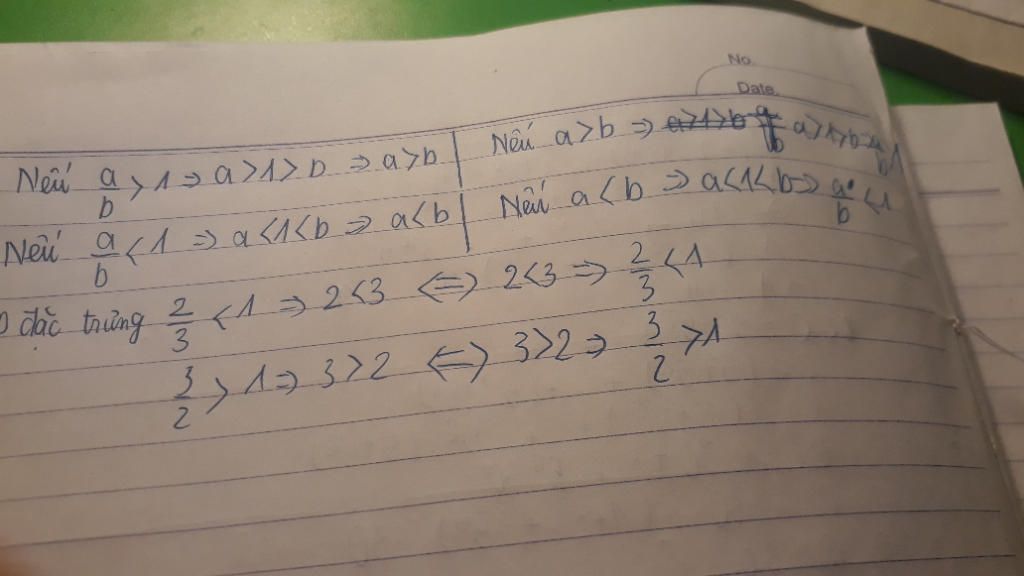 No.
Date.
Nếu a/b > 1 ⇒ a > 1 > b ⇒ a > b | Nếu a > b ⇒ a > 1 > b ⇒ a/b > 1
Nếu a/b < 1 ⇒ a < 1 < b ⇒ a < b | Nếu a < b ⇒ a < 1 < b ⇒ a/b < 1
đặc trưng 2/3 < 1 ⇒ 2 < 3 ⇔ 2 < 3 ⇒ 2/3 < 1
3/2 > 1 ⇒ 3 > 2 ⇔ 3 > 2 ⇒ 3/2 > 1